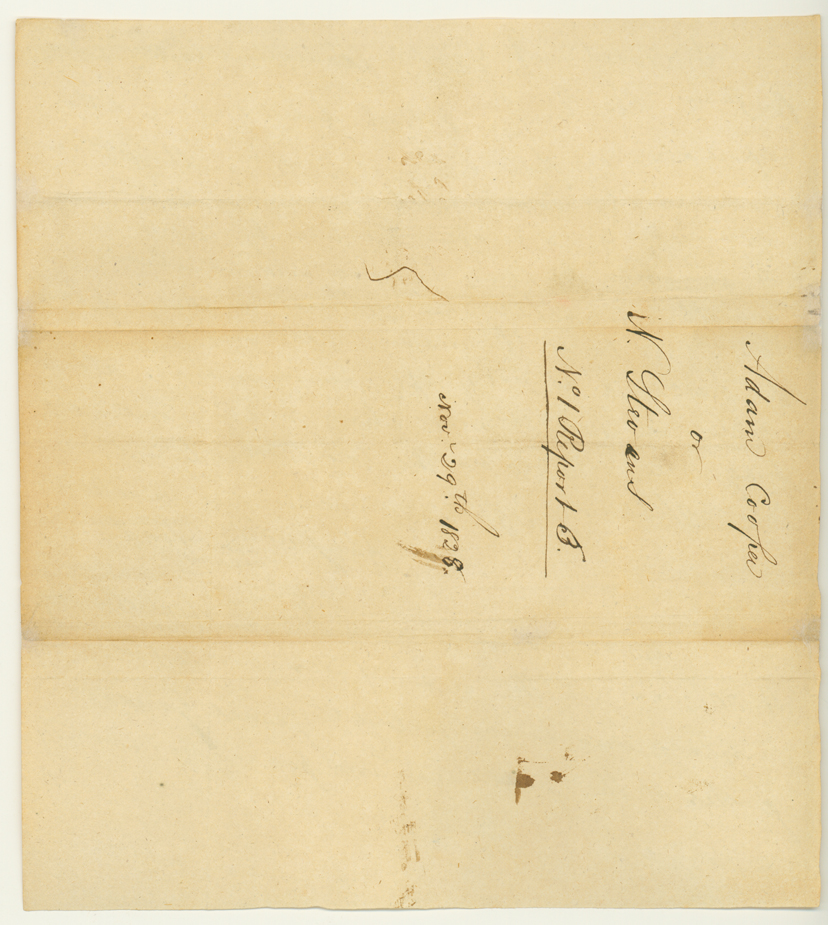 Adam Cooper
or
N. Stevens
No. 1 Report B.
Nov. 29th 1828.